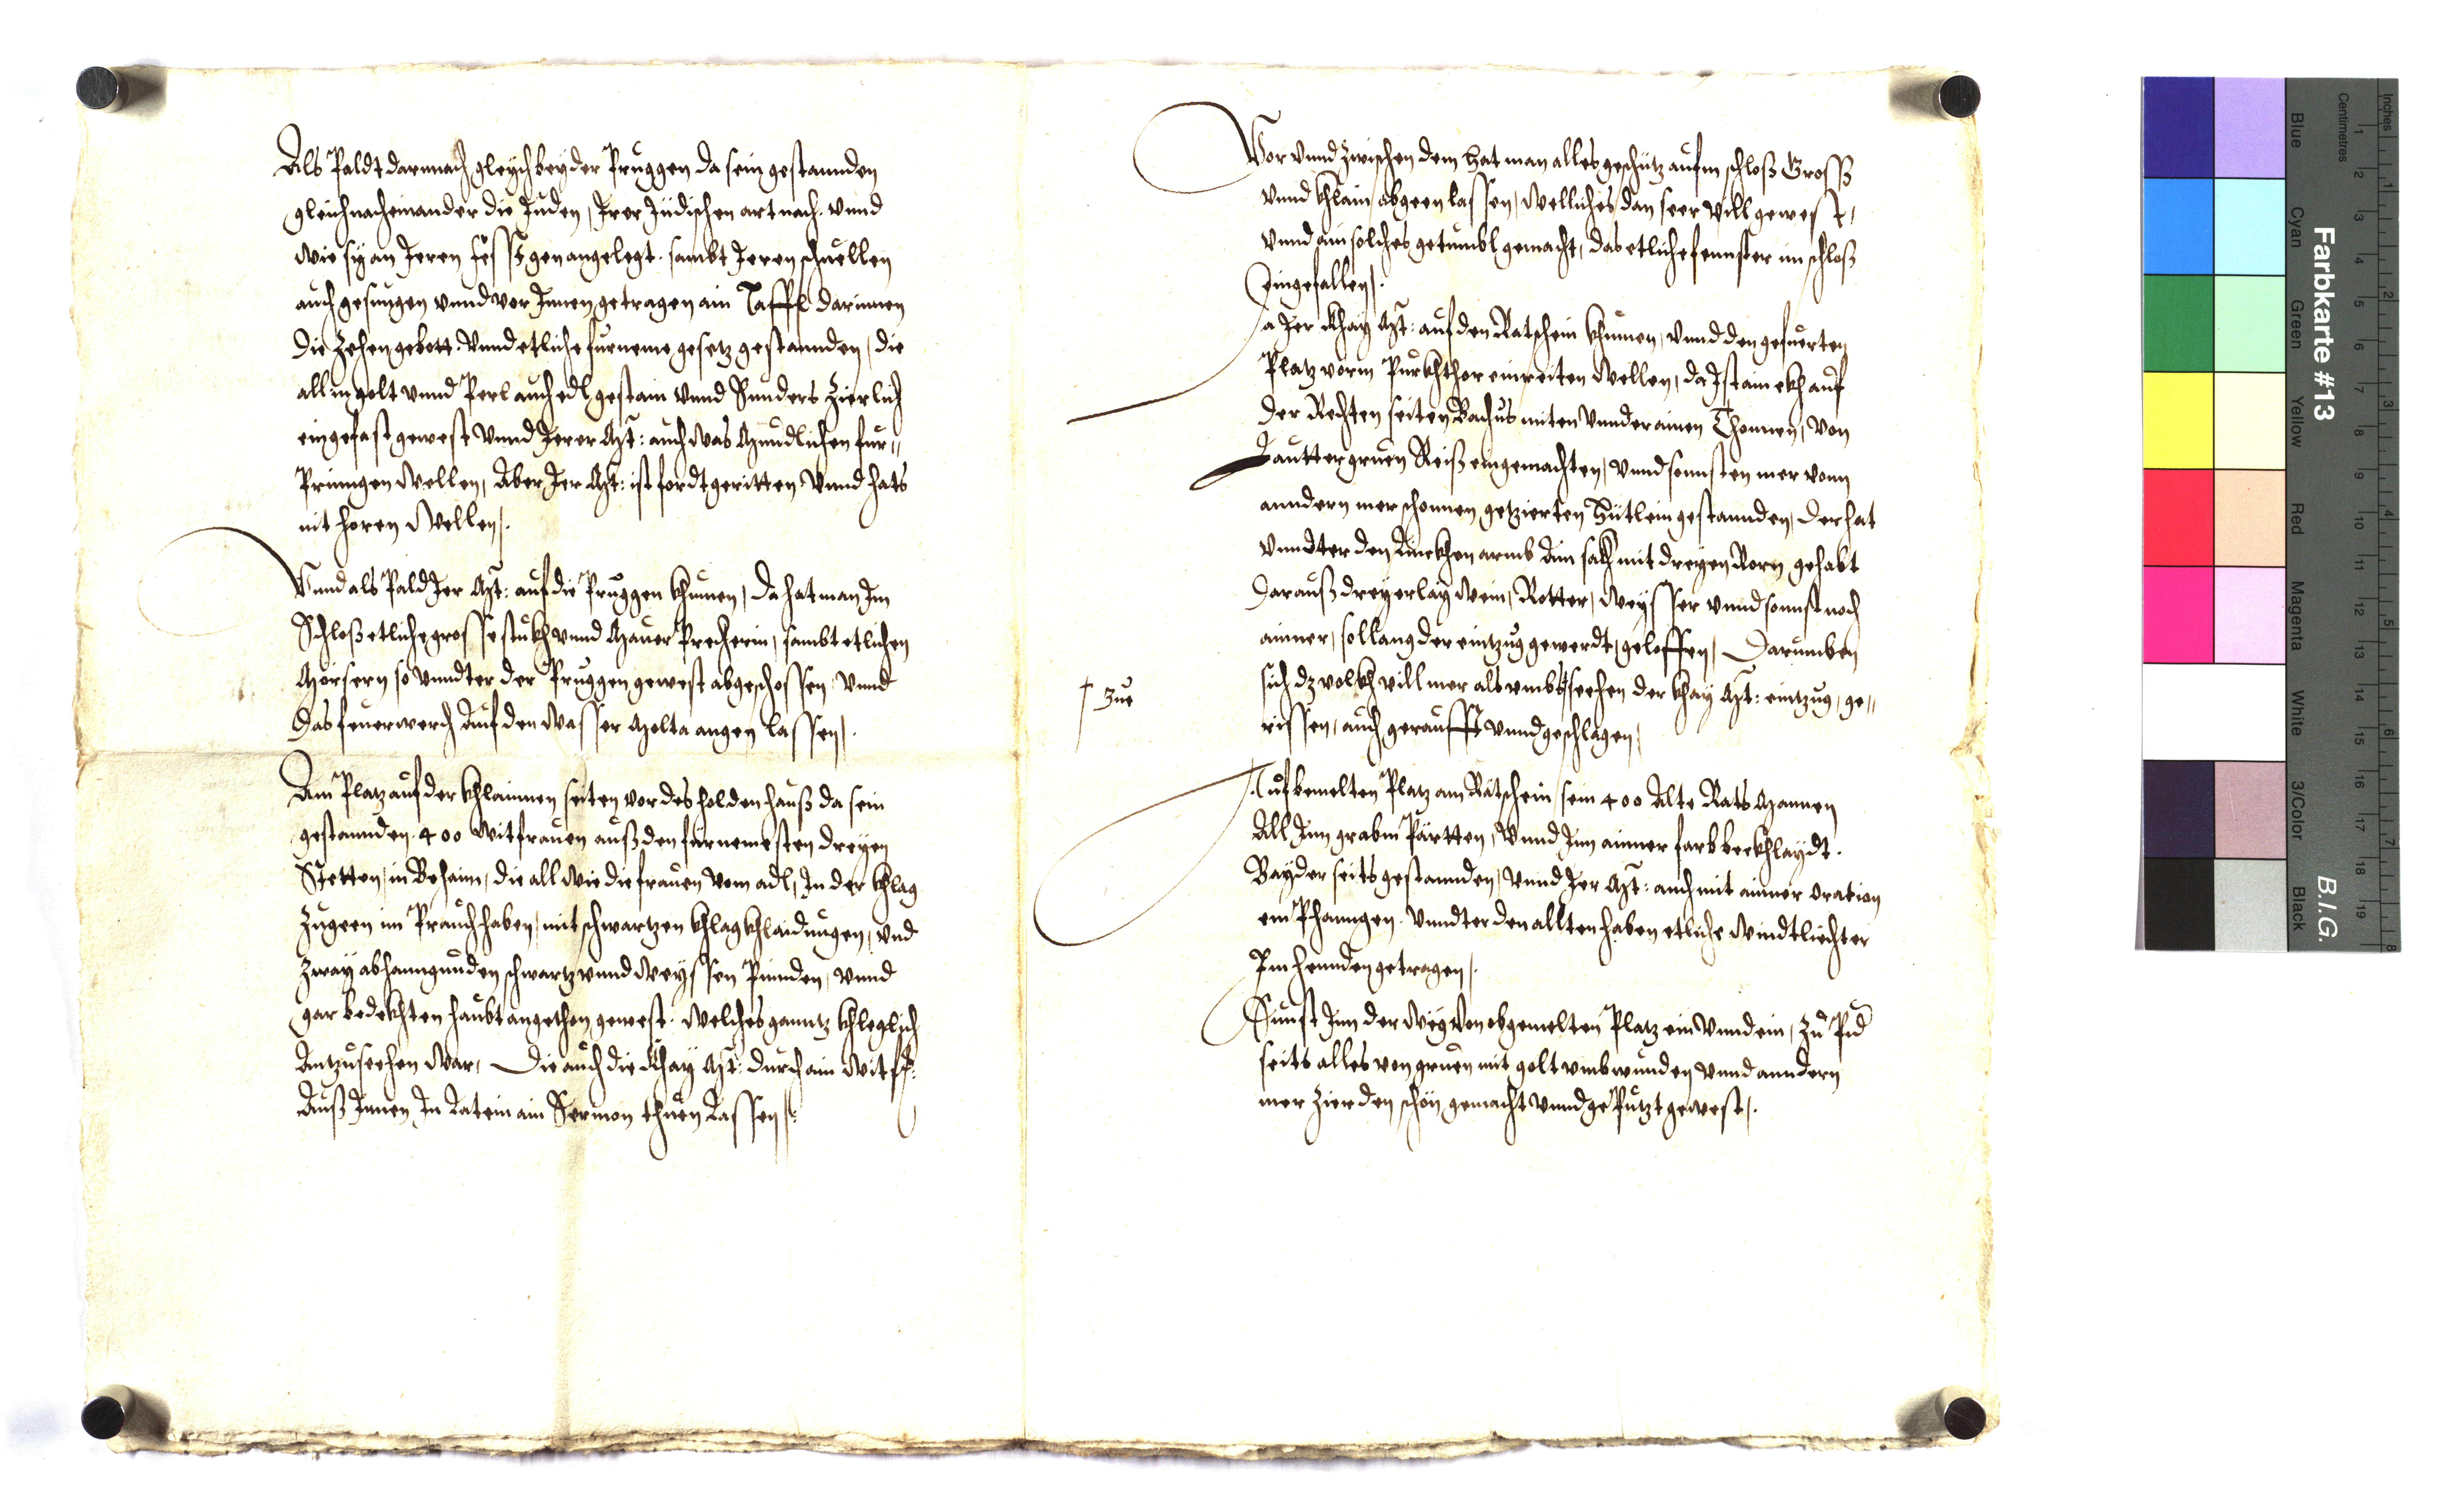 Als Paldt darnnach gleych bey der Pruggen da sein gestannden
gleich nacheinander die Juden, Irer Jüdischen art nach. vnnd
wie sy an Iren festagen angelegt. sambt Iren schuellen
auch gesungen vnnd vor Innen getragen ain Taffl darinnen
die Zehen gebott. Vnnd etliche furneme gesetz gestannden, die
all in golt vnnd Perl auch edl gestain vnnd Sunders Zierlich
eingefast gewest vnnd Irer Mt: auch was Mundlichen fur„
Pringen wellen, Aber Ier Mt: ist fordt geritten vnnd hats
nit horen wellen/.
Vnnd als Pald Ier Mt: auf die Pruggen khumen, da hat man Im
Schloß etliche grosse stukh vnnd Mauer Precherin, sambt etlichen
Mörsern so vnndter der Pruggen gewest abgeschossen, vnnd
das feuerwerch auf den Wasser Molta angen lassen/.
Am Platz auf der khlainnen seiten vor des holden hauß da sein
gestannden. 400 witfrauen auß den fürnemesten dreyen
Stetten, in Behaim, die all wie die frauen vom adl, In der khlag
zugeen im Prauch haben, mit schwartzen khlagkhlaidungen, vnd
zway abhanngunden schwartz vnnd weyssen Pinnden, vnnd
gar bedekhten haubt angethon gewest. welches ganntz khleglich
Antzusechen war, Die auch die Khay Mt: durch ain witf:
Auß Innen In Latein ain Sermon thuen Lassen/.
Vor vnnd zwischen dem hat man alles geschütz aufm schloß Gross
vnnd khlain abgeen lassen, welliches dan seer vill gewest,
vnnd ain solches getumbl gemacht, das etliche fennster im schloß
Eingefallen/.
Ja Ier Khay Mt: auf den Ratschein khumen, vnnd den gefüerten
Platz vorm Purkhthor einreiten wellen, da Ist ain ekh auf
der Rechten seiten Bachus miten vnnder ainen Thonnen, von
Lautter gruen Reiß eingemachten, vnnd sonnsten mer vonn
anndern mer schonnen getzierten Hütlein gestannden, der hat
vnndter den Linckhen armb Ain sakh mit dreyen Rorn gehabt
daraus dreyerlay wein, Rotter, Weysser vnnd sonnst noch
ainner, so lang der eintzug gewerdt, geloffen, Darumben
† zue
sich dz volkh vill mer als vmbs † sechen der Khay Mt: eintzug, ge„
rissen, auch gerauft vnnd geschlagen,
Auf bemelten Platz am Rätschein sein 400 Alte Rats Mannen
All Inn graben Pärtten, Vnnd Inn ainner farb bekhlaydt.
Bayder seits gestannden, vnnd Ier Mt: auch mit ainner oration
em Phanngen. Vnndter den allten haben etliche windtliechter
Im hennden getragen/.
Sunst Inn der weg von obgemelten Platz ein vnnd ein, zu Paid
seits alles von gruen mit golt vmbwunden vnnd anndern
mer Zierden schön gemacht vnnd ge Putzt gewest/.
Farbkarte #13
B.I.G.
Inches
Centimetres
Blue Cyan Green Yellow Red Magenta White 3/Color Black
1 2 3 4 5 6 7 8 9 10 11 12 13 14 15 16 17 18 19
1 2 3 4 5 6 7 8